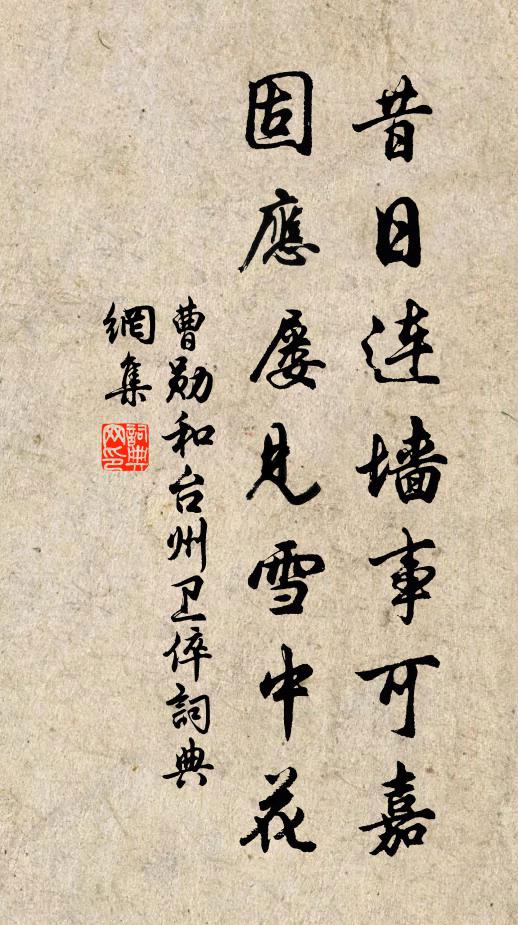 昔日连墙事可嘉
固應屡見雪中花
曹勋和台州卫倅詞典
網集
詞典网印